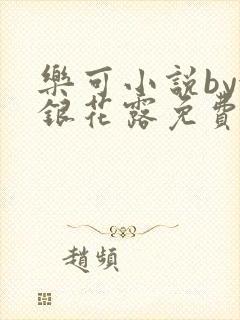 樂可小說by
銀花露免費
趙頻